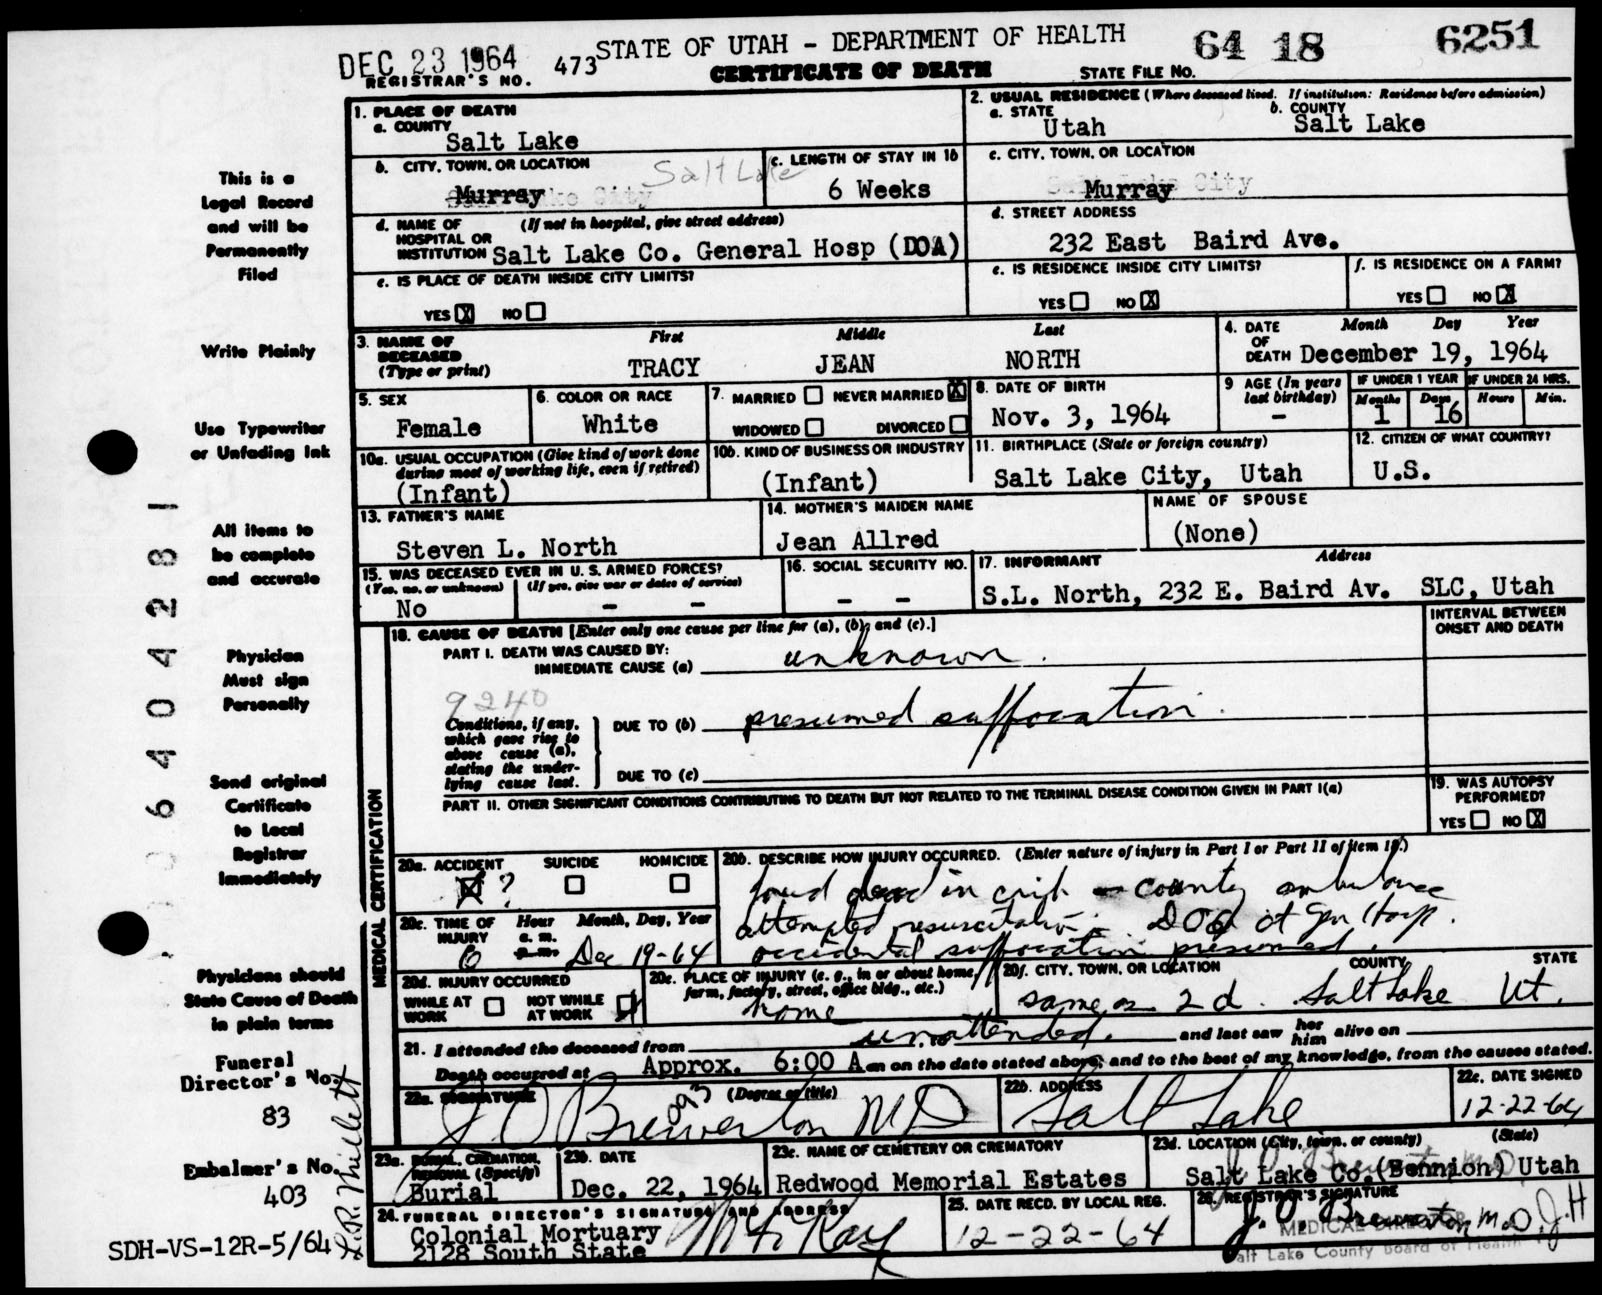 DEC 23 1964 473 STATE OF UTAH - DEPARTMENT OF HEALTH 64 18 6251
REGISTRAR'S NO. CERTIFICATE OF DEATH STATE FILE NO.
This is a Legal Record and will be Permanently Filed
Write Plainly
Use Typewriter or Unfading Ink
All items to be complete and accurate
Physician Must sign Personally
Send original Certificate to Local Registrar Immediately
Physicians should State Cause of Death in plain terms
Funeral Director's No.
83
Embalmer's No.
403
SDH-VS-12R-5/64
L.R. Millett
6404281
1. PLACE OF DEATH
a. COUNTY
Salt Lake
2. USUAL RESIDENCE (Where deceased lived. If institution: Residence before admission)
a. STATE b. COUNTY
Utah Salt Lake
b. CITY, TOWN, OR LOCATION
Murray Salt Lake City Salt Lake
c. LENGTH OF STAY IN 1b
6 Weeks
c. CITY, TOWN, OR LOCATION
Salt Lake City Murray
d. NAME OF HOSPITAL OR INSTITUTION (If not in hospital, give street address)
Salt Lake Co. General Hosp (DOA)
d. STREET ADDRESS
232 East Baird Ave.
e. IS PLACE OF DEATH INSIDE CITY LIMITS?
YES X NO
e. IS RESIDENCE INSIDE CITY LIMITS?
YES NO X
f. IS RESIDENCE ON A FARM?
YES NO X
3. NAME OF DECEASED (Type or print) First Middle Last
TRACY JEAN NORTH
4. DATE OF DEATH Month Day Year
December 19, 1964
5. SEX
Female
6. COLOR OR RACE
White
7. MARRIED NEVER MARRIED X
WIDOWED DIVORCED
8. DATE OF BIRTH
Nov. 3, 1964
9 AGE (In years last birthday)
-
IF UNDER 1 YEAR IF UNDER 24 HRS.
Months Days Hours Min.
1 16
10a. USUAL OCCUPATION (Give kind of work done during most of working life, even if retired)
(Infant)
10b. KIND OF BUSINESS OR INDUSTRY
(Infant)
11. BIRTHPLACE (State or foreign country)
Salt Lake City, Utah
12. CITIZEN OF WHAT COUNTRY?
U.S.
13. FATHER'S NAME
Steven L. North
14. MOTHER'S MAIDEN NAME
Jean Allred
NAME OF SPOUSE
(None)
15. WAS DECEASED EVER IN U. S. ARMED FORCES?
(Yes, no, or unknown) (If yes, give war or dates of service)
No - -
16. SOCIAL SECURITY NO.
- -
17. INFORMANT Address
S.L. North, 232 E. Baird Av. SLC, Utah
MEDICAL CERTIFICATION
18. CAUSE OF DEATH [Enter only one cause per line for (a), (b), and (c).]
INTERVAL BETWEEN ONSET AND DEATH
PART I. DEATH WAS CAUSED BY:
IMMEDIATE CAUSE (a) unknown.
9240
Conditions, if any, which gave rise to above cause (a), stating the underlying cause last.
DUE TO (b) presumed suffocation.
DUE TO (c)
PART II. OTHER SIGNIFICANT CONDITIONS CONTRIBUTING TO DEATH BUT NOT RELATED TO THE TERMINAL DISEASE CONDITION GIVEN IN PART I(a)
19. WAS AUTOPSY PERFORMED?
YES NO X
20a. ACCIDENT SUICIDE HOMICIDE
X ?
20b. DESCRIBE HOW INJURY OCCURRED. (Enter nature of injury in Part I or Part II of item 18.)
found dead in crib - county ambulance
attempted resuscitation. DOA at Gen Hosp.
accidental suffocation presumed.
20c. TIME OF INJURY Hour Month, Day, Year
a. m. p. m.
6 Dec 19-64
20d. INJURY OCCURRED
WHILE AT WORK NOT WHILE AT WORK
20e. PLACE OF INJURY (e. g., in or about home, farm, factory, street, office bldg., etc.)
home
20f. CITY, TOWN, OR LOCATION COUNTY STATE
same as 2d. Salt Lake Ut.
21. I attended the deceased from unattended. and last saw her him alive on
Death occurred at Approx. 6:00 A m on the date stated above; and to the best of my knowledge, from the causes stated.
22a. SIGNATURE (Degree or title)
J O Brewerton MD
22b. ADDRESS
Salt Lake
22c. DATE SIGNED
12-22-64
23a. BURIAL, CREMATION, REMOVAL (Specify)
Burial
23b. DATE
Dec. 22, 1964
23c. NAME OF CEMETERY OR CREMATORY
Redwood Memorial Estates
23d. LOCATION (City, town, or county) (State)
Salt Lake Co. (Bennion) Utah
24. FUNERAL DIRECTOR'S SIGNATURE AND ADDRESS
Colonial Mortuary
2128 South State
25. DATE RECD. BY LOCAL REG.
12-22-64
26. REGISTRAR'S SIGNATURE
J. O. Brewerton M.D. J H
MEDICAL DIRECTOR
Salt Lake County Board of Health